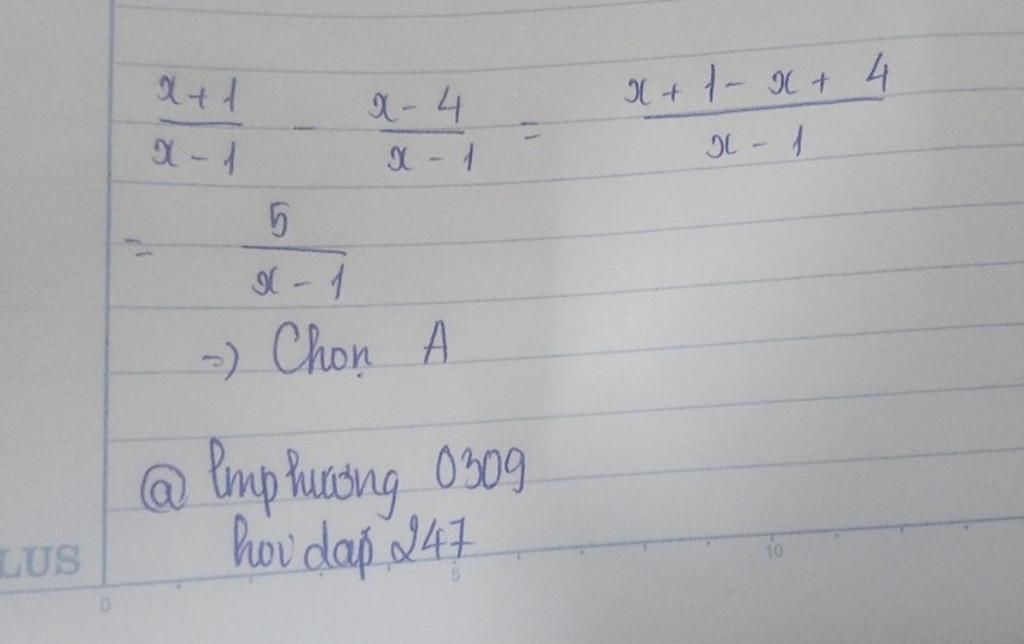 x + 1 / x - 1 - x - 4 / x - 1 = x + 1 - x + 4 / x - 1
= 5 / x - 1
=) Chọn A
@ lmphương 0309
hoidap 247
LUS
0 5 10